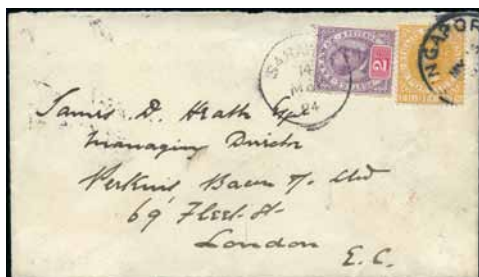 SARAWAK
14
MA
94
2c
INGAPOR
James D. Heath Esqre
Managing Director
Perkins Bacon & Ltd
69 Fleet St
London
E.C.